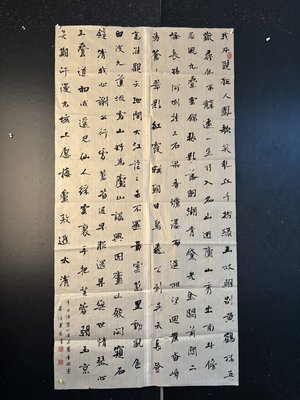 我本楚狂人鳳歌笑孔丘手持綠玉杖朝別黃鶴樓五
嶽尋仙不辭遠一生好入名山遊廬山秀出南斗傍
屏風九疊雲錦張影落明湖青黛光金闕前開二
峰長銀河倒挂三石梁香爐瀑布遙相望迴崖沓嶂
凌蒼蒼翠影紅霞映朝日鳥飛不到吳天長登
高壯觀天地間大江茫茫去不還黃雲萬里動風色
白波九道流雪山好為廬山謠興因廬山發閑窺石
鏡清我心謝公行處蒼苔沒早服還丹無世情琴心
三疊道初成遙見仙人綵雲裏手把芙蓉朝玉京
先期汗漫九垓上願接盧敖遊太清